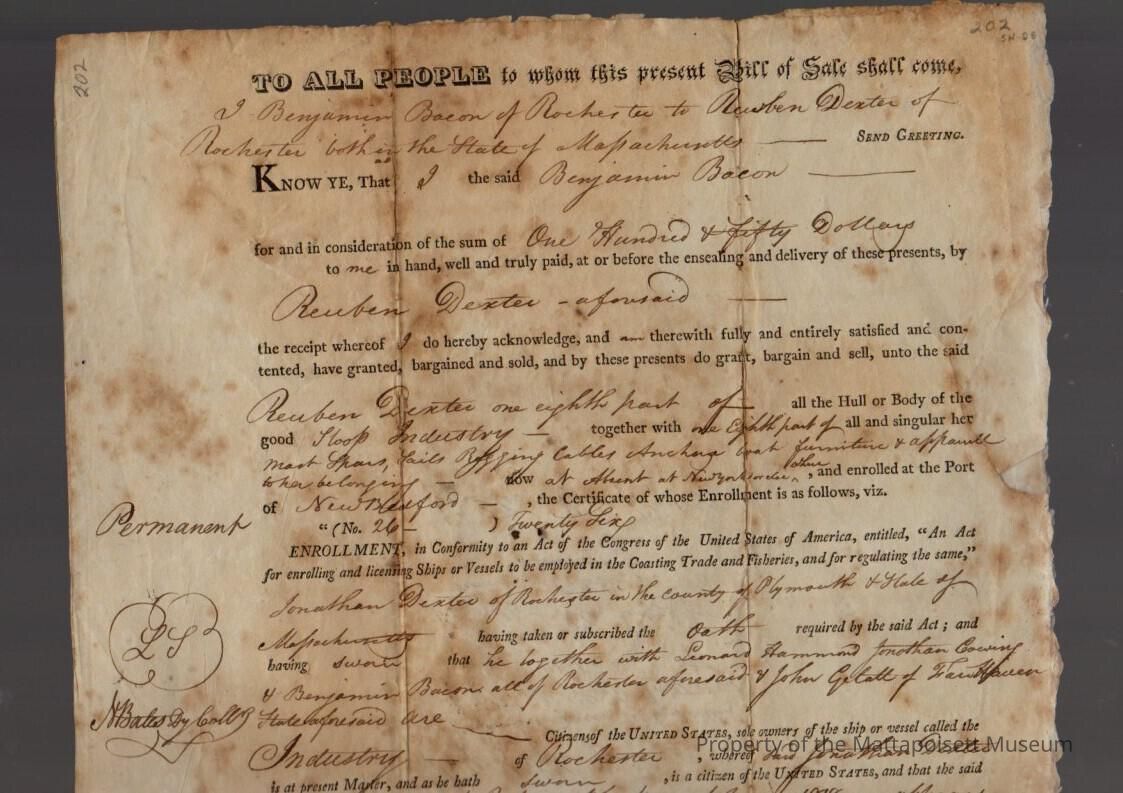 202
202
SH-08
TO ALL PEOPLE to whom this present Bill of Sale shall come,
I Benjamin Bacon of Rochester to Reuben Dexter of
Rochester both in the State of Massachusetts SEND GREETING.
KNOW YE, That I the said Benjamin Bacon
for and in consideration of the sum of One Hundred & fifty Dollars
to me in hand, well and truly paid, at or before the ensealing and delivery of these presents, by
Reuben Dexter - aforesaid
the receipt whereof I do hereby acknowledge, and am therewith fully and entirely satisfied and con-
tented, have granted, bargained and sold, and by these presents do grant, bargain and sell, unto the said
Reuben Dexter one eighth part of all the Hull or Body of the
good Sloop Industry together with one Eighth part of all and singular her
Mast Spars, Sails Rigging Cables Anchors boat furniture & apparell
to her belonging now at Absent at New York or else where, and enrolled at the Port
of New Bedford, the Certificate of whose Enrollment is as follows, viz.
Permanent
"(No. 26 ) Twenty Six
ENROLLMENT, in Conformity to an Act of the Congress of the United States of America, entitled, "An Act
for enrolling and licensing Ships or Vessels to be employed in the Coasting Trade and Fisheries, and for regulating the same,"
Jonathan Dexter of Rochester in the County of Plymouth & State of
Massachusetts having taken or subscribed the Oath required by the said Act; and
LS
having sworn that he together with Leonard Hammond Jonathan Cowing
& Benjamin Bacon all of Rochester aforesaid & John Gelatt of Fair Haven
N Bates Dy Coll State aforesaid are
Citizens of the UNITED STATES, sole owners of the ship or vessel called the
Industry of Rochester, whereof said Jonathan Dexter
is at present Master, and as he hath sworn, is a citizen of the UNITED STATES, and that the said
Property of the Mattapoisett Museum